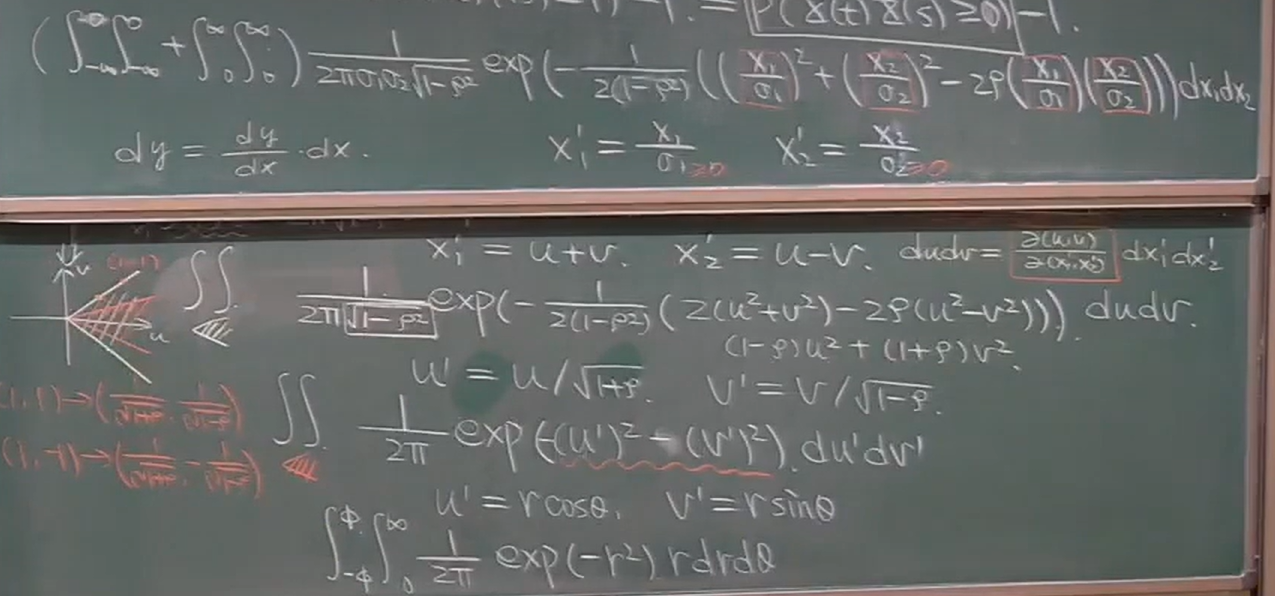 = P(X(t)X(s)≥0) -1.
(∫_{-∞}^{0}∫_{-∞}^{0} + ∫_{0}^{∞}∫_{0}^{∞}) \frac{1}{2πσ₁σ₂√(1-ρ²)} exp(-\frac{1}{2(1-ρ²)}((\frac{x₁}{σ₁})² + (\frac{x₂}{σ₂})² - 2ρ(\frac{x₁}{σ₁})(\frac{x₂}{σ₂})))dx₁dx₂
dy = \frac{dy}{dx}·dx. x₁' = \frac{x₁}{σ₁≥0} x₂' = \frac{x₂}{σ₂≥0}
x₁' = u+v. x₂' = u-v. dudv = \frac{∂(u,v)}{∂(x₁',x₂')} dx₁'dx₂'
v u (1,1)
∬ \frac{1}{2π√(1-ρ²)} exp(-\frac{1}{2(1-ρ²)}(2(u²+v²)-2ρ(u²-v²))) dudv.
(1-ρ)u² + (1+ρ)v²
u' = u/√(1+ρ). v' = v/√(1-ρ).
(1,1)→(\frac{1}{√(1+ρ)}, \frac{1}{√(1-ρ)})
(1,-1)→(\frac{1}{√(1+ρ)}, -\frac{1}{√(1-ρ)})
∬ \frac{1}{2π} exp(-(u')² - (v')²). du'dv'
u' = rcosθ, v' = rsinθ
∫_{-φ}^{φ}∫_{0}^{∞} \frac{1}{2π} exp(-r²) rdrdθ